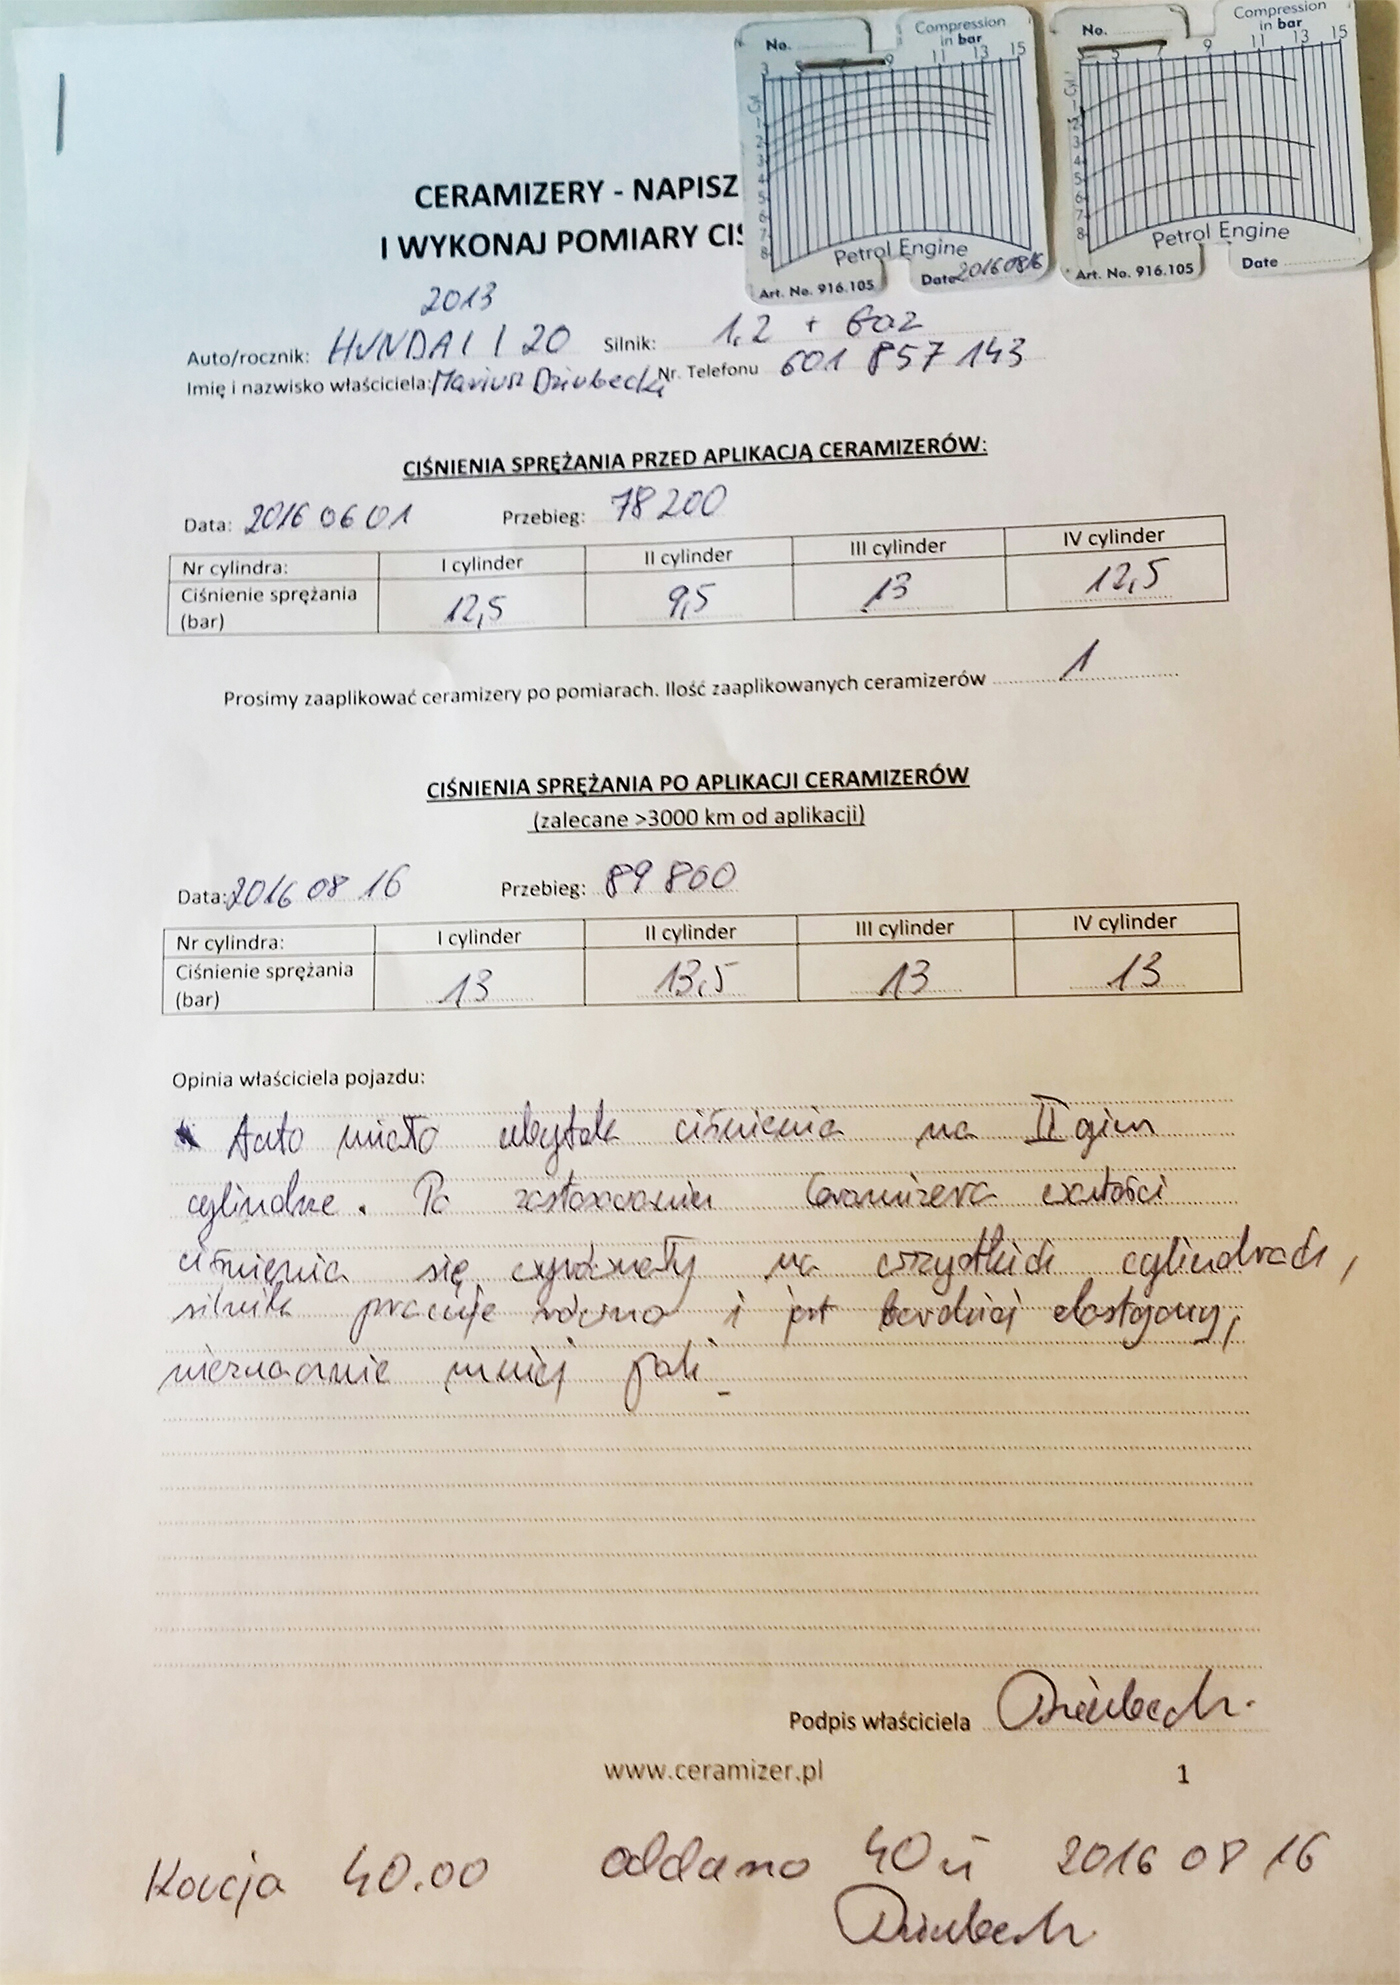 No.
Compression
in bar
3 5 7 9 11 13 15
Cyl.
1
2
3
4
5
6
7
8
Petrol Engine
Art. No. 916.105
Date 20160816
No.
Compression
in bar
3 5 7 9 11 13 15
Cyl.
1
2
3
4
5
6
7
8
Petrol Engine
Art. No. 916.105
Date
CERAMIZERY - NAPISZ
I WYKONAJ POMIARY CIŚ
2013
Auto/rocznik: HUNDAI I 20 Silnik: 1,2 + Gaz
Imię i nazwisko właściciela: Mariusz Dziubecki Nr. Telefonu 601 857 143
CIŚNIENIA SPRĘŻANIA PRZED APLIKACJĄ CERAMIZERÓW:
Data: 2016 06 01 Przebieg: 78 200
Nr cylindra: I cylinder II cylinder III cylinder IV cylinder
Ciśnienie sprężania
(bar) 12,5 9,5 13 12,5
Prosimy zaaplikować ceramizery po pomiarach. Ilość zaaplikowanych ceramizerów 1
CIŚNIENIA SPRĘŻANIA PO APLIKACJI CERAMIZERÓW
(zalecane >3000 km od aplikacji)
Data: 2016 08 16 Przebieg: 89 800
Nr cylindra: I cylinder II cylinder III cylinder IV cylinder
Ciśnienie sprężania
(bar) 13 13,5 13 13
Opinia właściciela pojazdu:
Auto miało ubytek ciśnienia na II gim
cylindrze. Po zastosowaniu Ceramizera wartości
ciśnienia się wyrównały na wszystkich cylindrach,
silnik pracuje równo i jest bardziej elastyczny,
nieznacznie mniej pali
Podpis właściciela Dziubecki
www.ceramizer.pl 1
Kaucja 40.00 oddano 40 zł 2016 08 16
Dziubecki